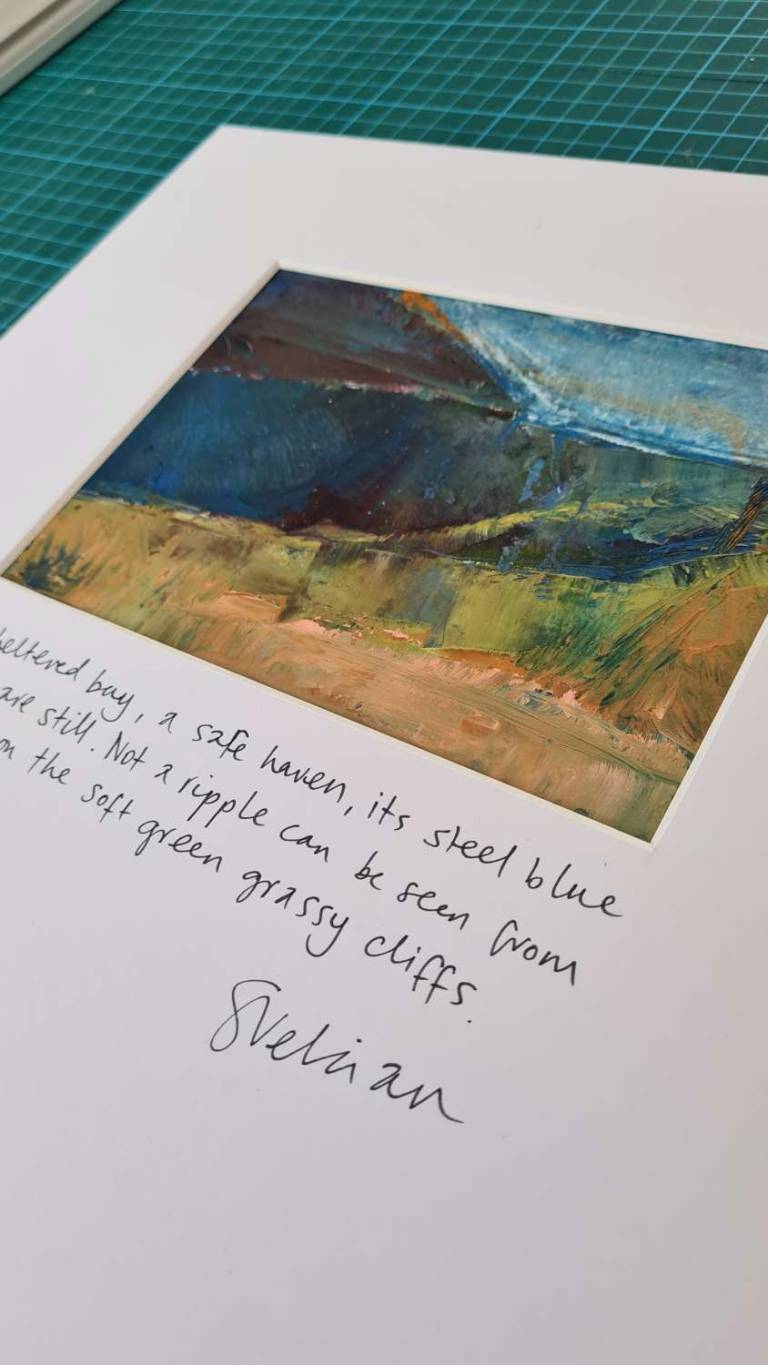 heltered bay, a safe haven, its steel blue
are still. Not a ripple can be seen from
the soft green grassy cliffs.